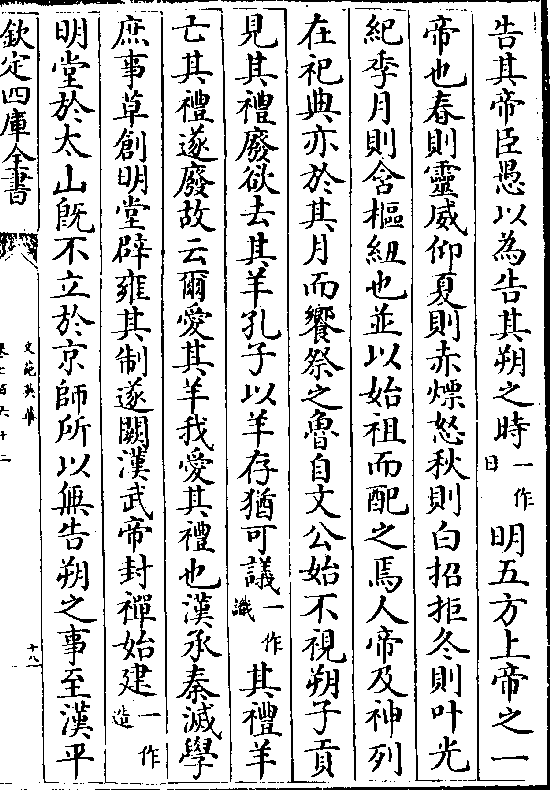 告其帝臣愚以為告其朔之時一作日明五方上帝之一
帝也春則靈威仰夏則赤熛怒秋則白招拒冬則叶光
紀季月則含樞紐也並以始祖而配之焉人帝及神列
在祀典亦於其月而饗祭之魯自文公始不視朔子貢
見其禮廢欲去其羊孔子以羊存猶可議一作識其禮羊
亡其禮遂廢故云爾愛其羊我愛其禮也漢承秦滅學
庶事草創明堂辟雍其制遂闕漢武帝封禪始建一作造
明堂於太山既不立於京師所以無告朔之事至漢平
欽定四庫全書
文苑英華
卷七百六十二
十八